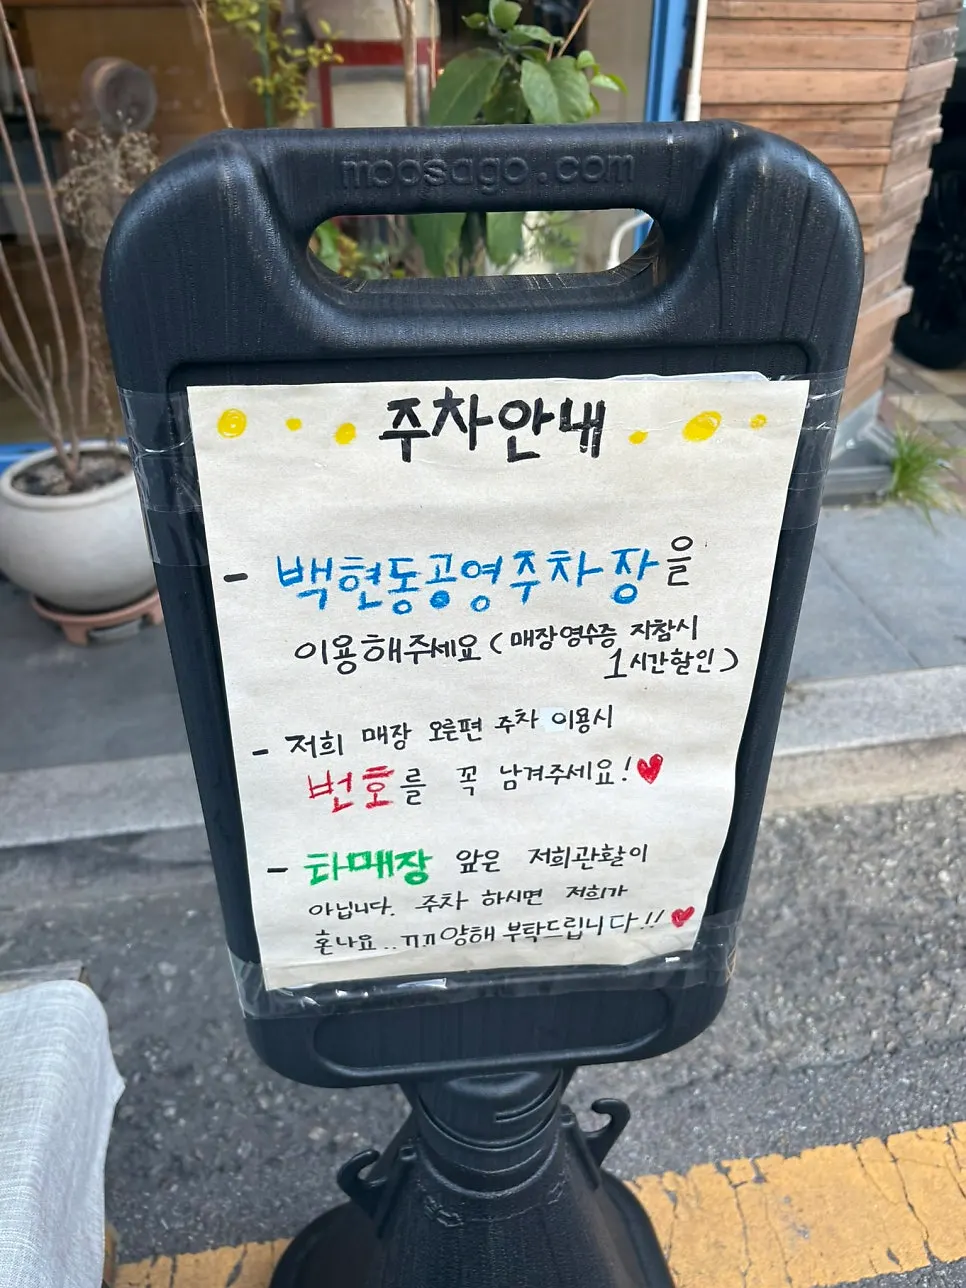 moosago.com
주차안내
- 백현동공영주차장을
이용해주세요 (매장영수증 지참시
1시간할인)
- 저희 매장 오른편 주차 이용시
번호를 꼭 남겨주세요!♥
- 타매장 앞은 저희관할이
아닙니다. 주차 하시면 저희가
혼나요.. ㅠㅠ양해 부탁드립니다!!♥